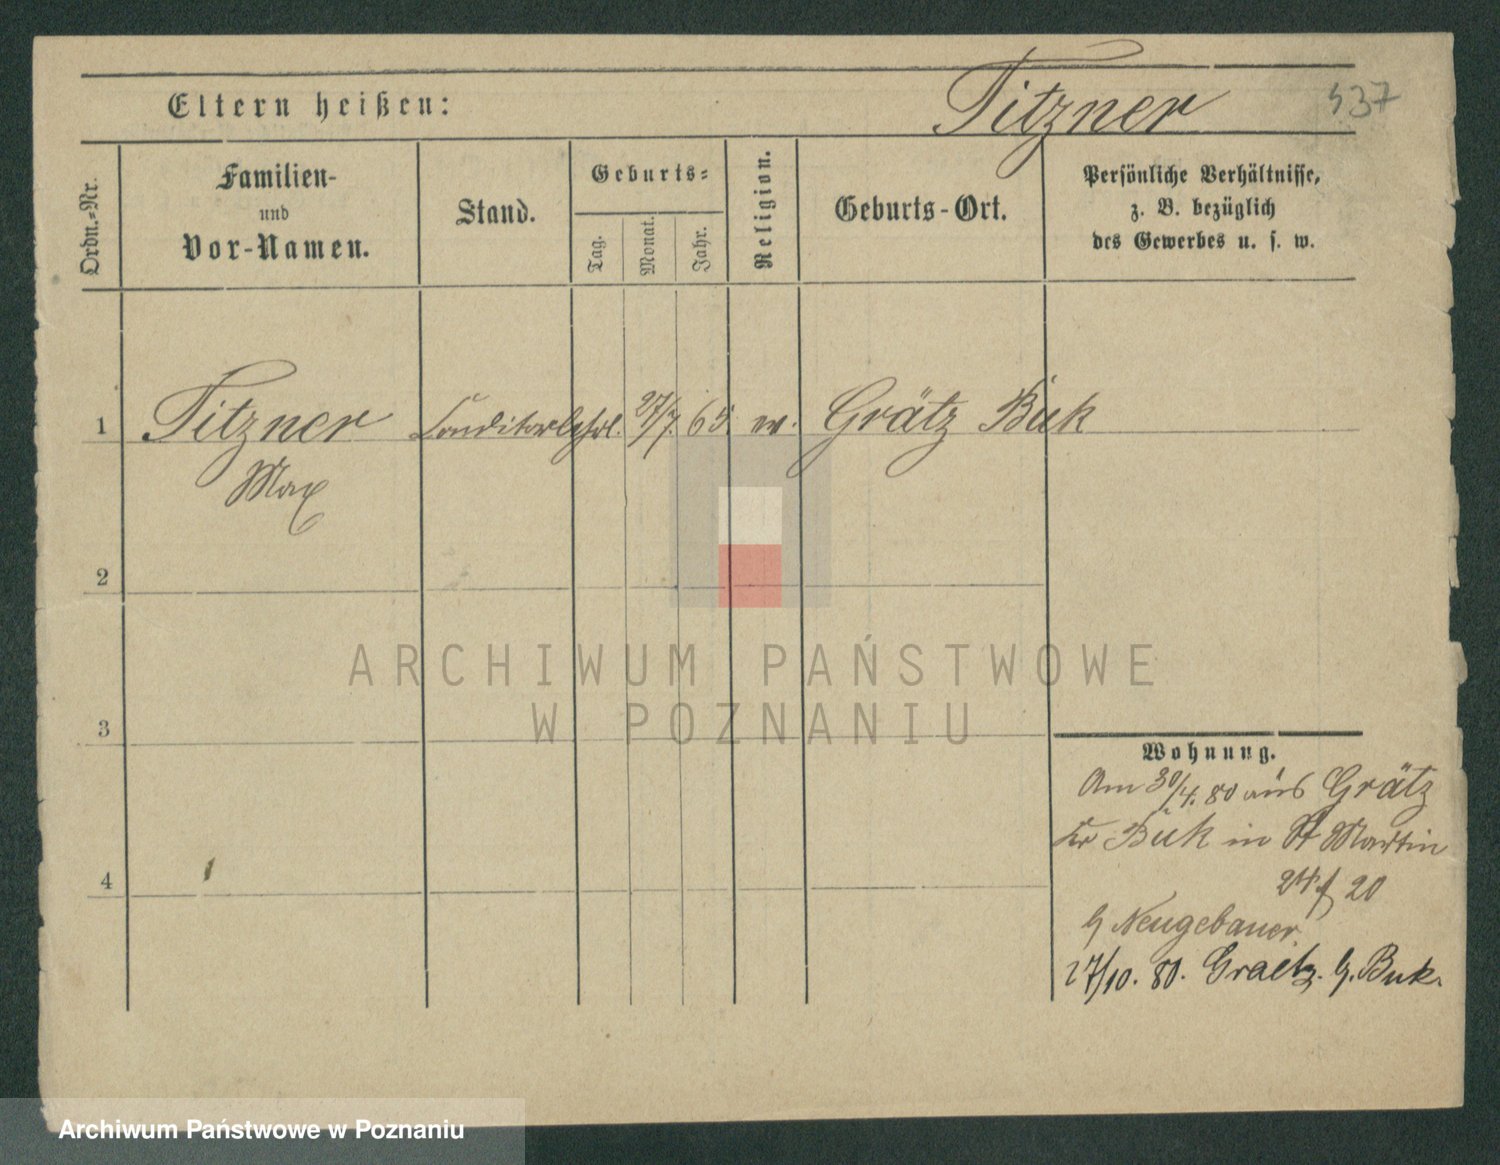 Eltern heißen:
Titzner
537
Ordn.=Nr.
Familien-
und
Vor-Namen.
Stand.
Geburts=
Tag.
Monat.
Jahr.
Religion.
Geburts-Ort.
Persönliche Verhältnisse,
z. B. bezüglich
des Gewerbes u. s. w.
1 Titzner Conditorlehrl. 27/7. 65. ev. Grätz Buk
Max
2
ARCHIWUM PAŃSTWOWE
W POZNANIU
3
Wohnung.
Am 30/4. 80 aus Grätz
Kr Buk in St Martin
20
b Neugebauer.
4
27/10. 80. Graetz. b. Buk.
Archiwum Państwowe w Poznaniu